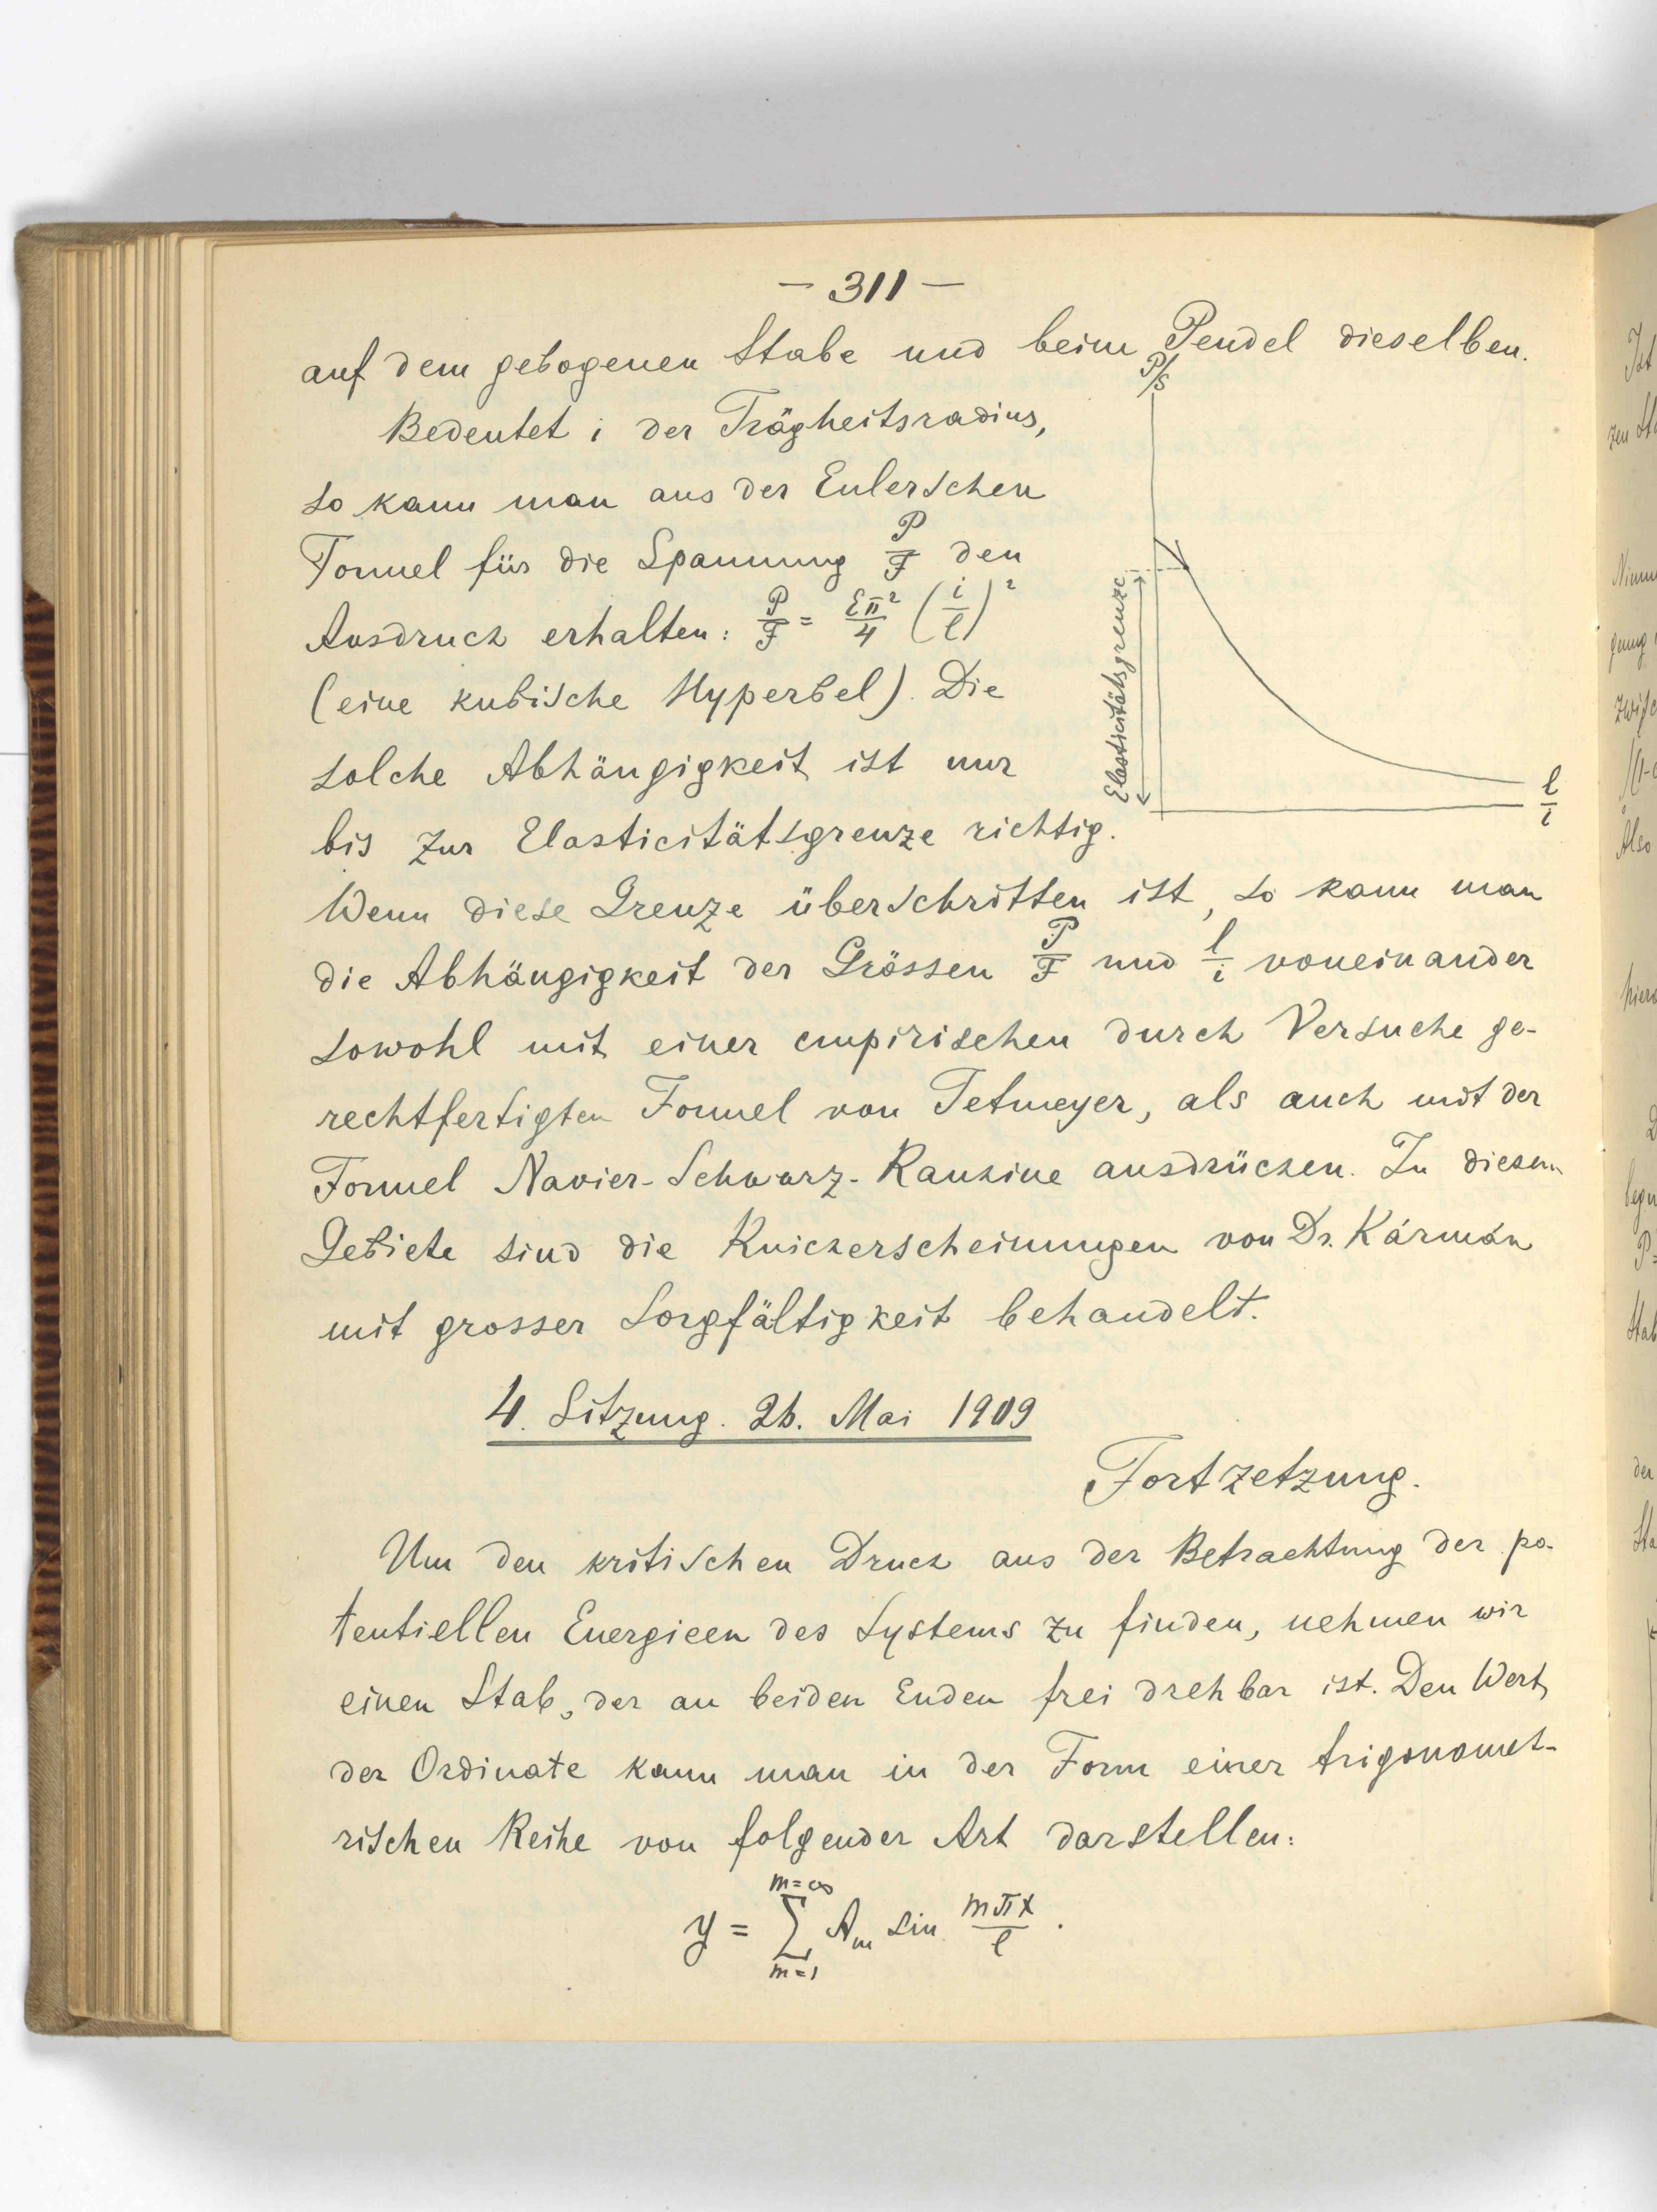 — 311 —
auf dem gebogenen Stabe und beim Pendel dieselben.
Bedeutet i der Trägheitsradius,
so kann man aus der Eulerschen
Formel für die Spannung P/F den
Ausdruck erhalten: P/F = Eπ²/4 (i/l)²
(eine kubische Hyperbel). Die
solche Abhängigkeit ist nur
bis zur Elasticitätsgrenze richtig.
P/S
Elasticitätsgrenze
l/i
Wenn diese Grenze überschritten ist, so kann man
die Abhängigkeit der Grössen P/F und l/i voneinander
sowohl mit einer empirischen durch Versuche ge-
rechtfertigten Formel von Tetmeyer, als auch mit der
Formel Navier-Schwarz-Rankine ausdrücken. In diesem
Gebiete sind die Knickerscheinungen von Dr. Kármán
mit grosser Sorgfältigkeit behandelt.
4. Sitzung. 26. Mai 1909
Fortzetzung.
Um den kritischen Druck aus der Betrachtung der po-
tentiellen Energieen des Systems zu finden, nehmen wir
einen Stab, der an beiden Enden frei drehbar ist. Den Wert
der Ordinate kann man in der Form einer trigonomet-
rischen Reihe von folgender Art darstellen:
y = ∑_{m=1}^{m=∞} A_m sin mπx/l .